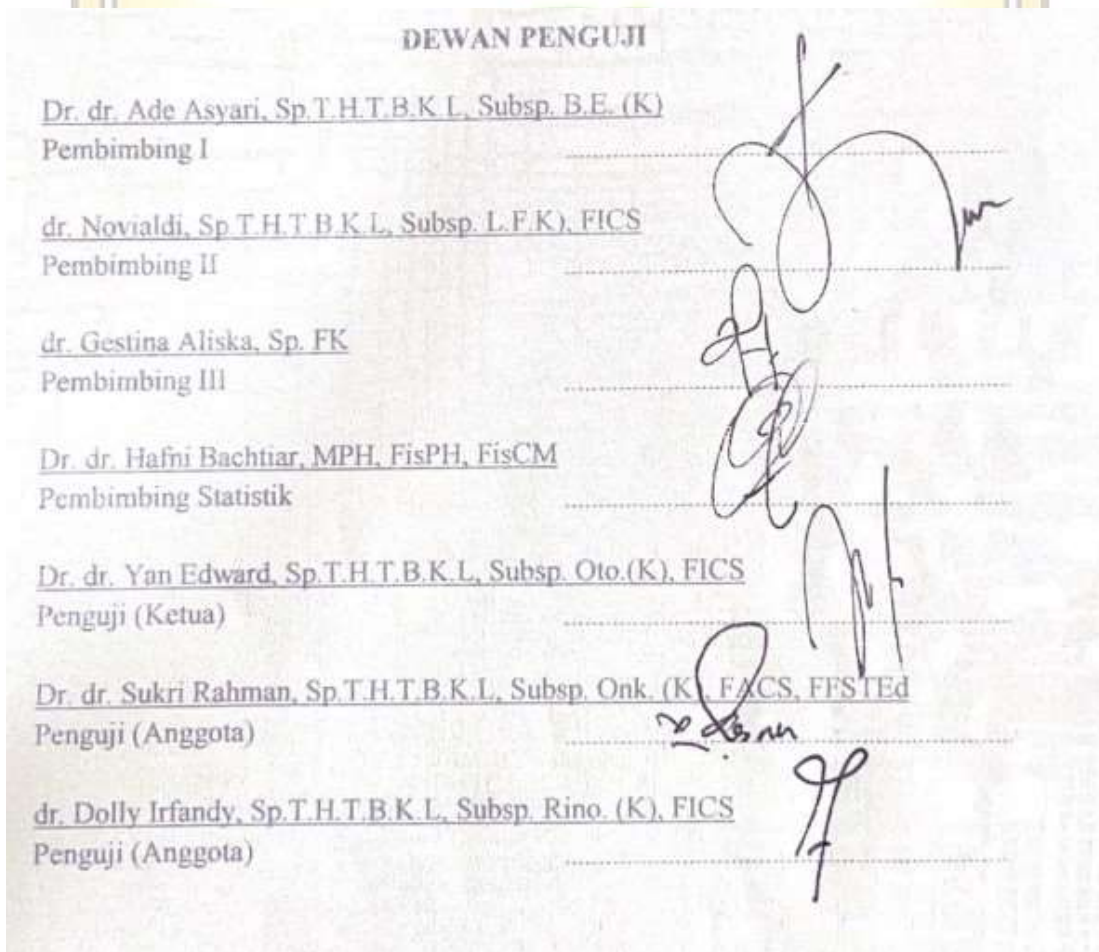 DEWAN PENGUJI
Dr. dr. Ade Asyari, Sp.T.H.T.B.K L, Subsp. B.E. (K)
Pembimbing I
dr. Novialdi, Sp.T.H.T B K L, Subsp. L.F.K), FICS
Pembimbing II
dr. Gestina Aliska, Sp. FK
Pembimbing III
Dr. dr. Hafni Bachtiar, MPH, FisPH, FisCM
Pembimbing Statistik
Dr. dr. Yan Edward, Sp.T.H.T.B.K.L, Subsp. Oto.(K), FICS
Penguji (Ketua)
Dr. dr. Sukri Rahman, Sp.T.H.T.B.K.L, Subsp. Onk. (K), FACS, FFSTEd
Penguji (Anggota)
dr. Dolly Irfandy, Sp.T.H.T.B.K.L, Subsp. Rino. (K), FICS
Penguji (Anggota)